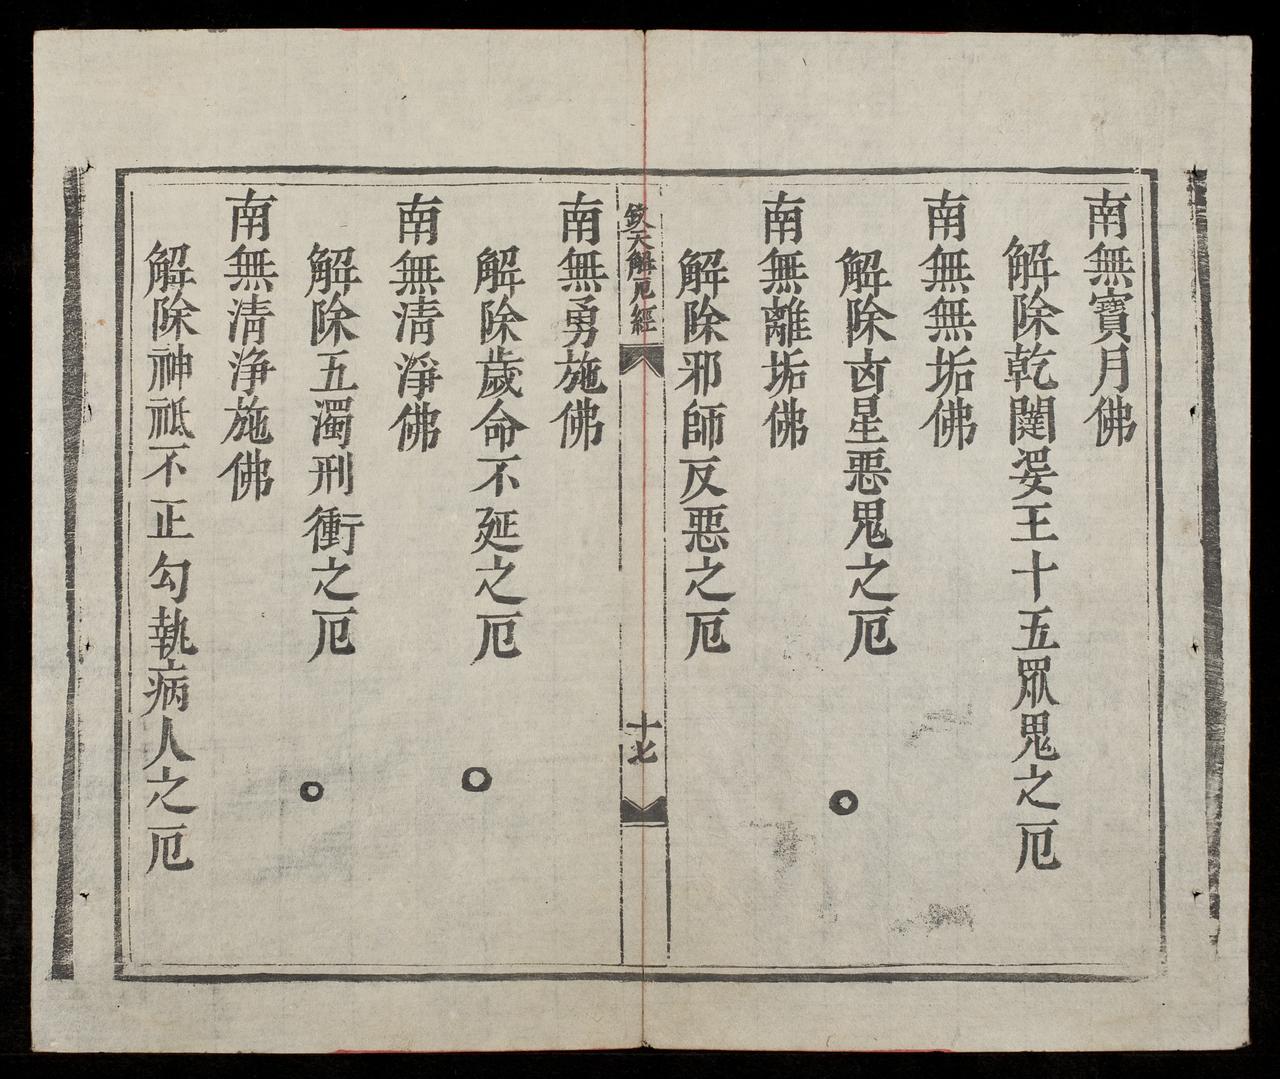 南無寶月佛
解除乾闥婆王十五眾鬼之厄
南無無垢佛
解除凶星惡鬼之厄
南無離垢佛
解除邪師反惡之厄
欽天解厄經
十七
南無勇施佛
解除歲命不延之厄
南無清淨佛
解除五濁刑衝之厄
南無清浄施佛
解除神祗不正勾執病人之厄